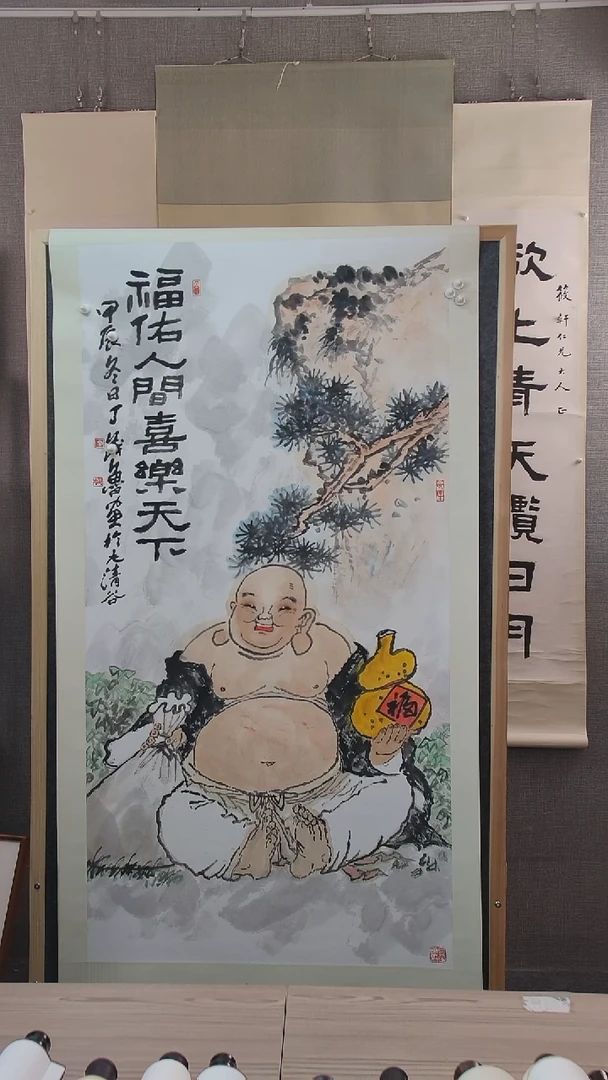 福佑人間喜樂天下
甲辰冬日丁
畫於九清谷
福
欲上青天覽日月
筱軒仁兄大人正